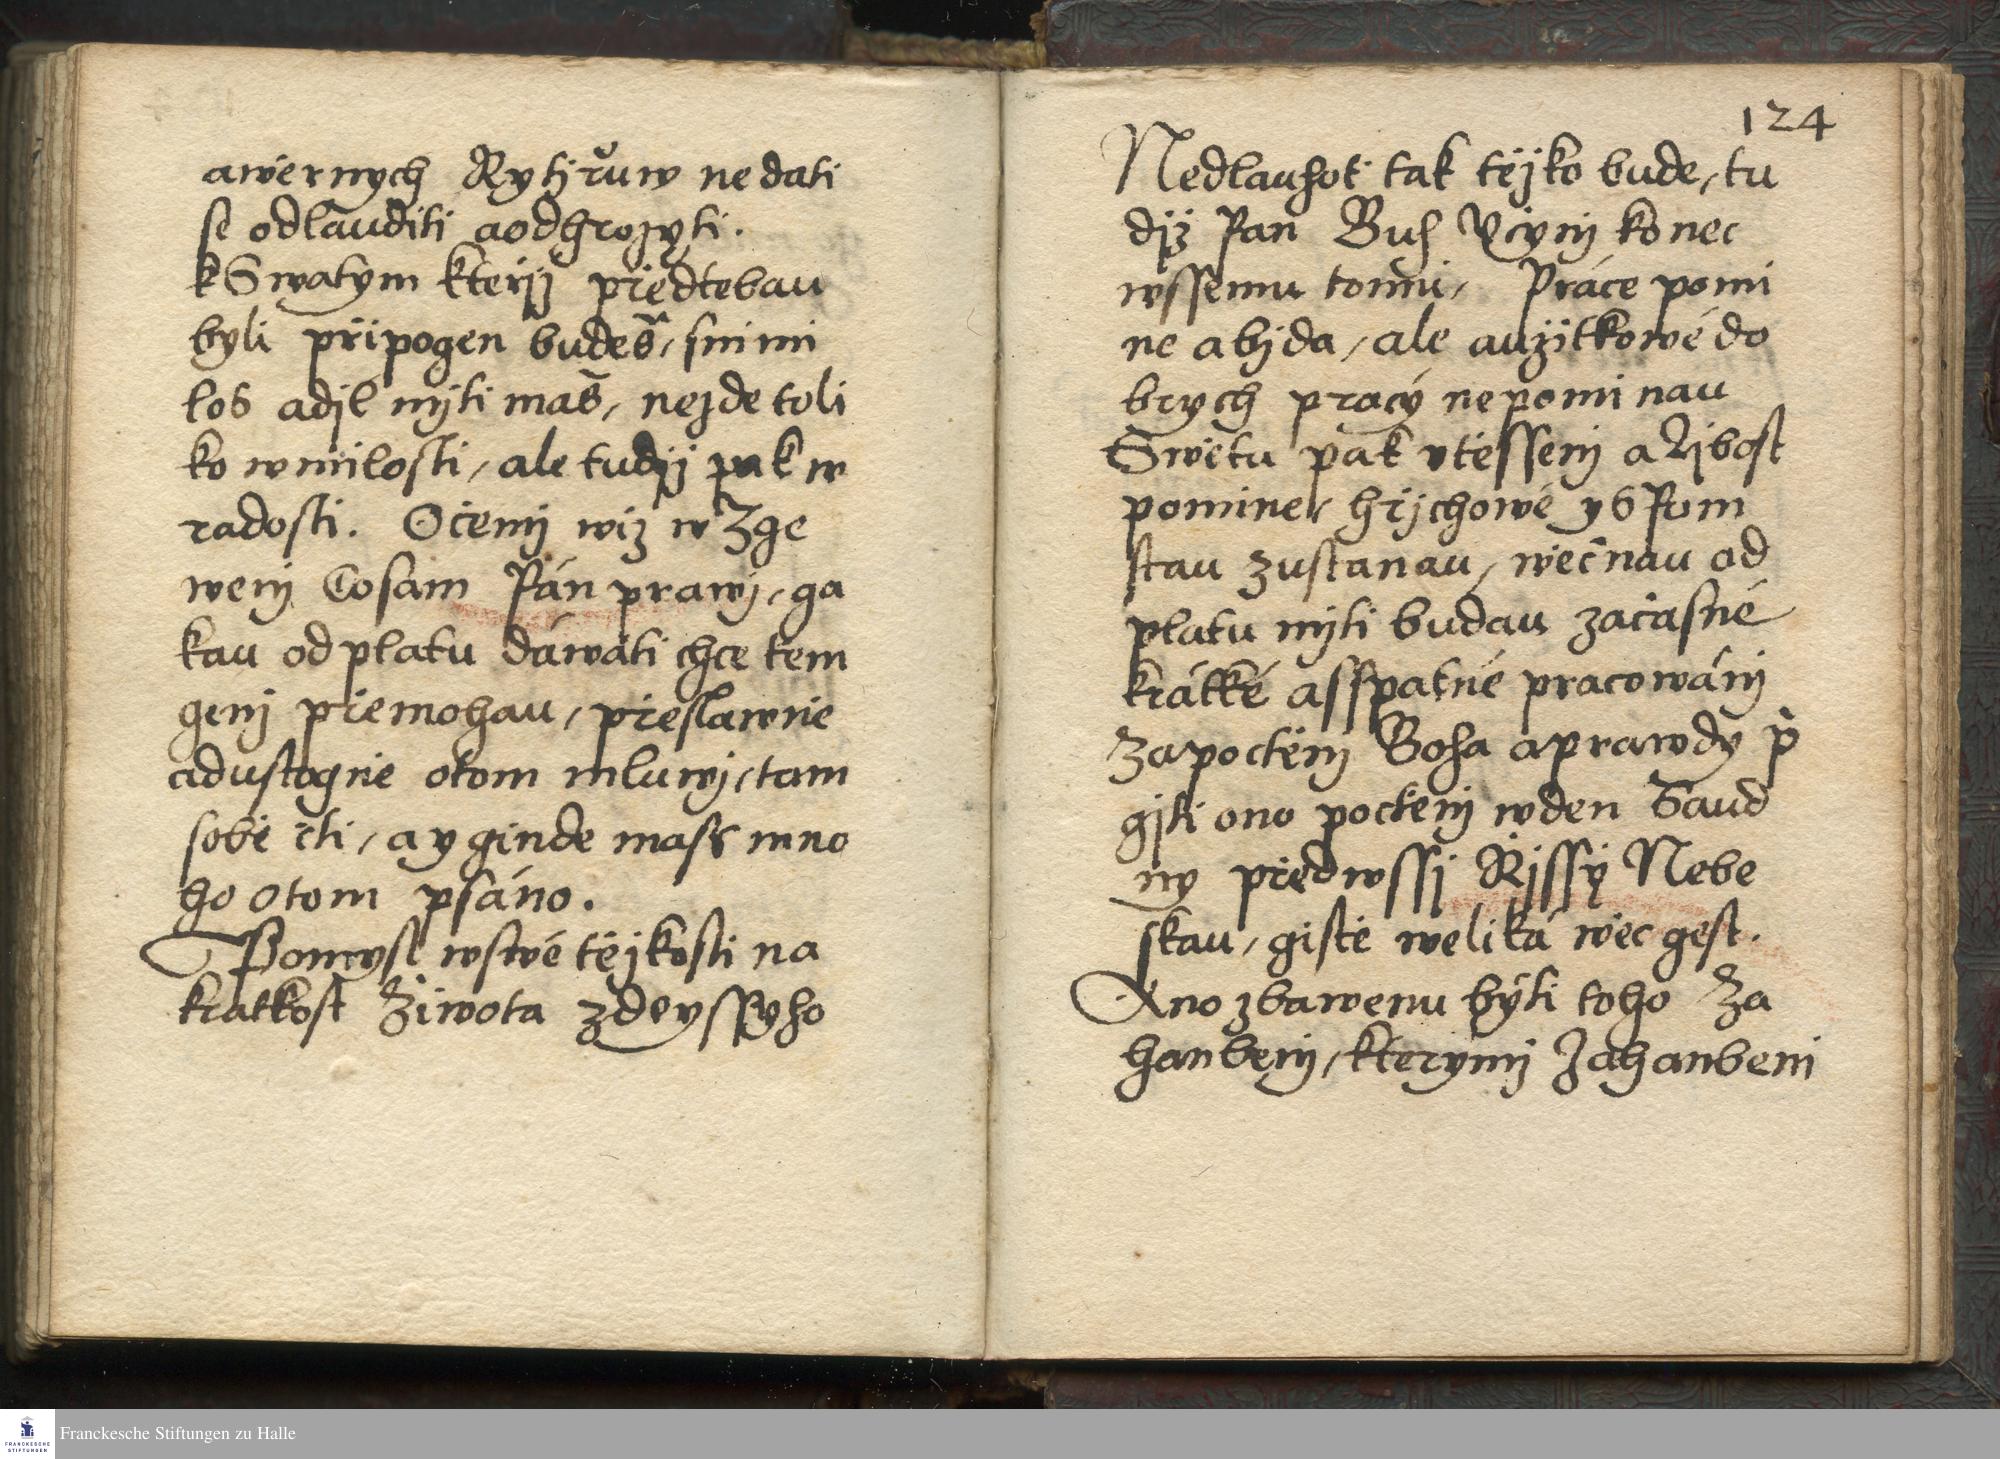 awěrnych Rytjřůw nedati
se odlauditi aodhrozyti.
kSwatym kteřjž předtebau
byli připogen budeš, snimi
los adjl mjti maš, nejde toli
ko wmilosti, ale tudjž pak w
radosti. Očemž wiz wZge
wenj Cosam Pán prawj, ga
kau odplatu dáwati chce tem
genž přemohau, přeslawně
adustogně otom mluwj, tam
sobě čti, a y ginde mass mno
ho otom psáno.
Pomysl wswé tějkosti na
kratkost Žiwota zdeyssyho
124
Nedlauhoť tak tějko bude, tu
djž Pan Buh Včynj konec
wssemu tomu, Práce pomi
ne abjda, ale aužitkowé do
brych pracý nepominau
Swětu pak vtěssenj aLjbost
pomine, hřjchowé ysPom
stau zustanau, wěčnau od
platu mjti budau začasné
krátké asspatné pracowánj
Zapoctěnj Boha aprawdy př
gjti ono poctěnj wden Saud
ny předwssj Řjssý Nebe
skau, gistě weliká wěc gest.
Ano zbawenu býti toho Za
hanbenj, kterymž Zahanbeni
Franckesche Stiftungen zu Halle
FRANCKESCHE
STIFTUNGEN